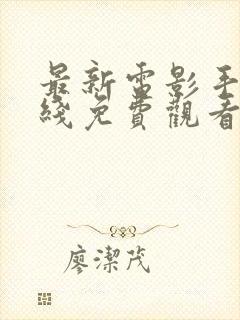 最新電影手
綫免費觀看
廖潔茂